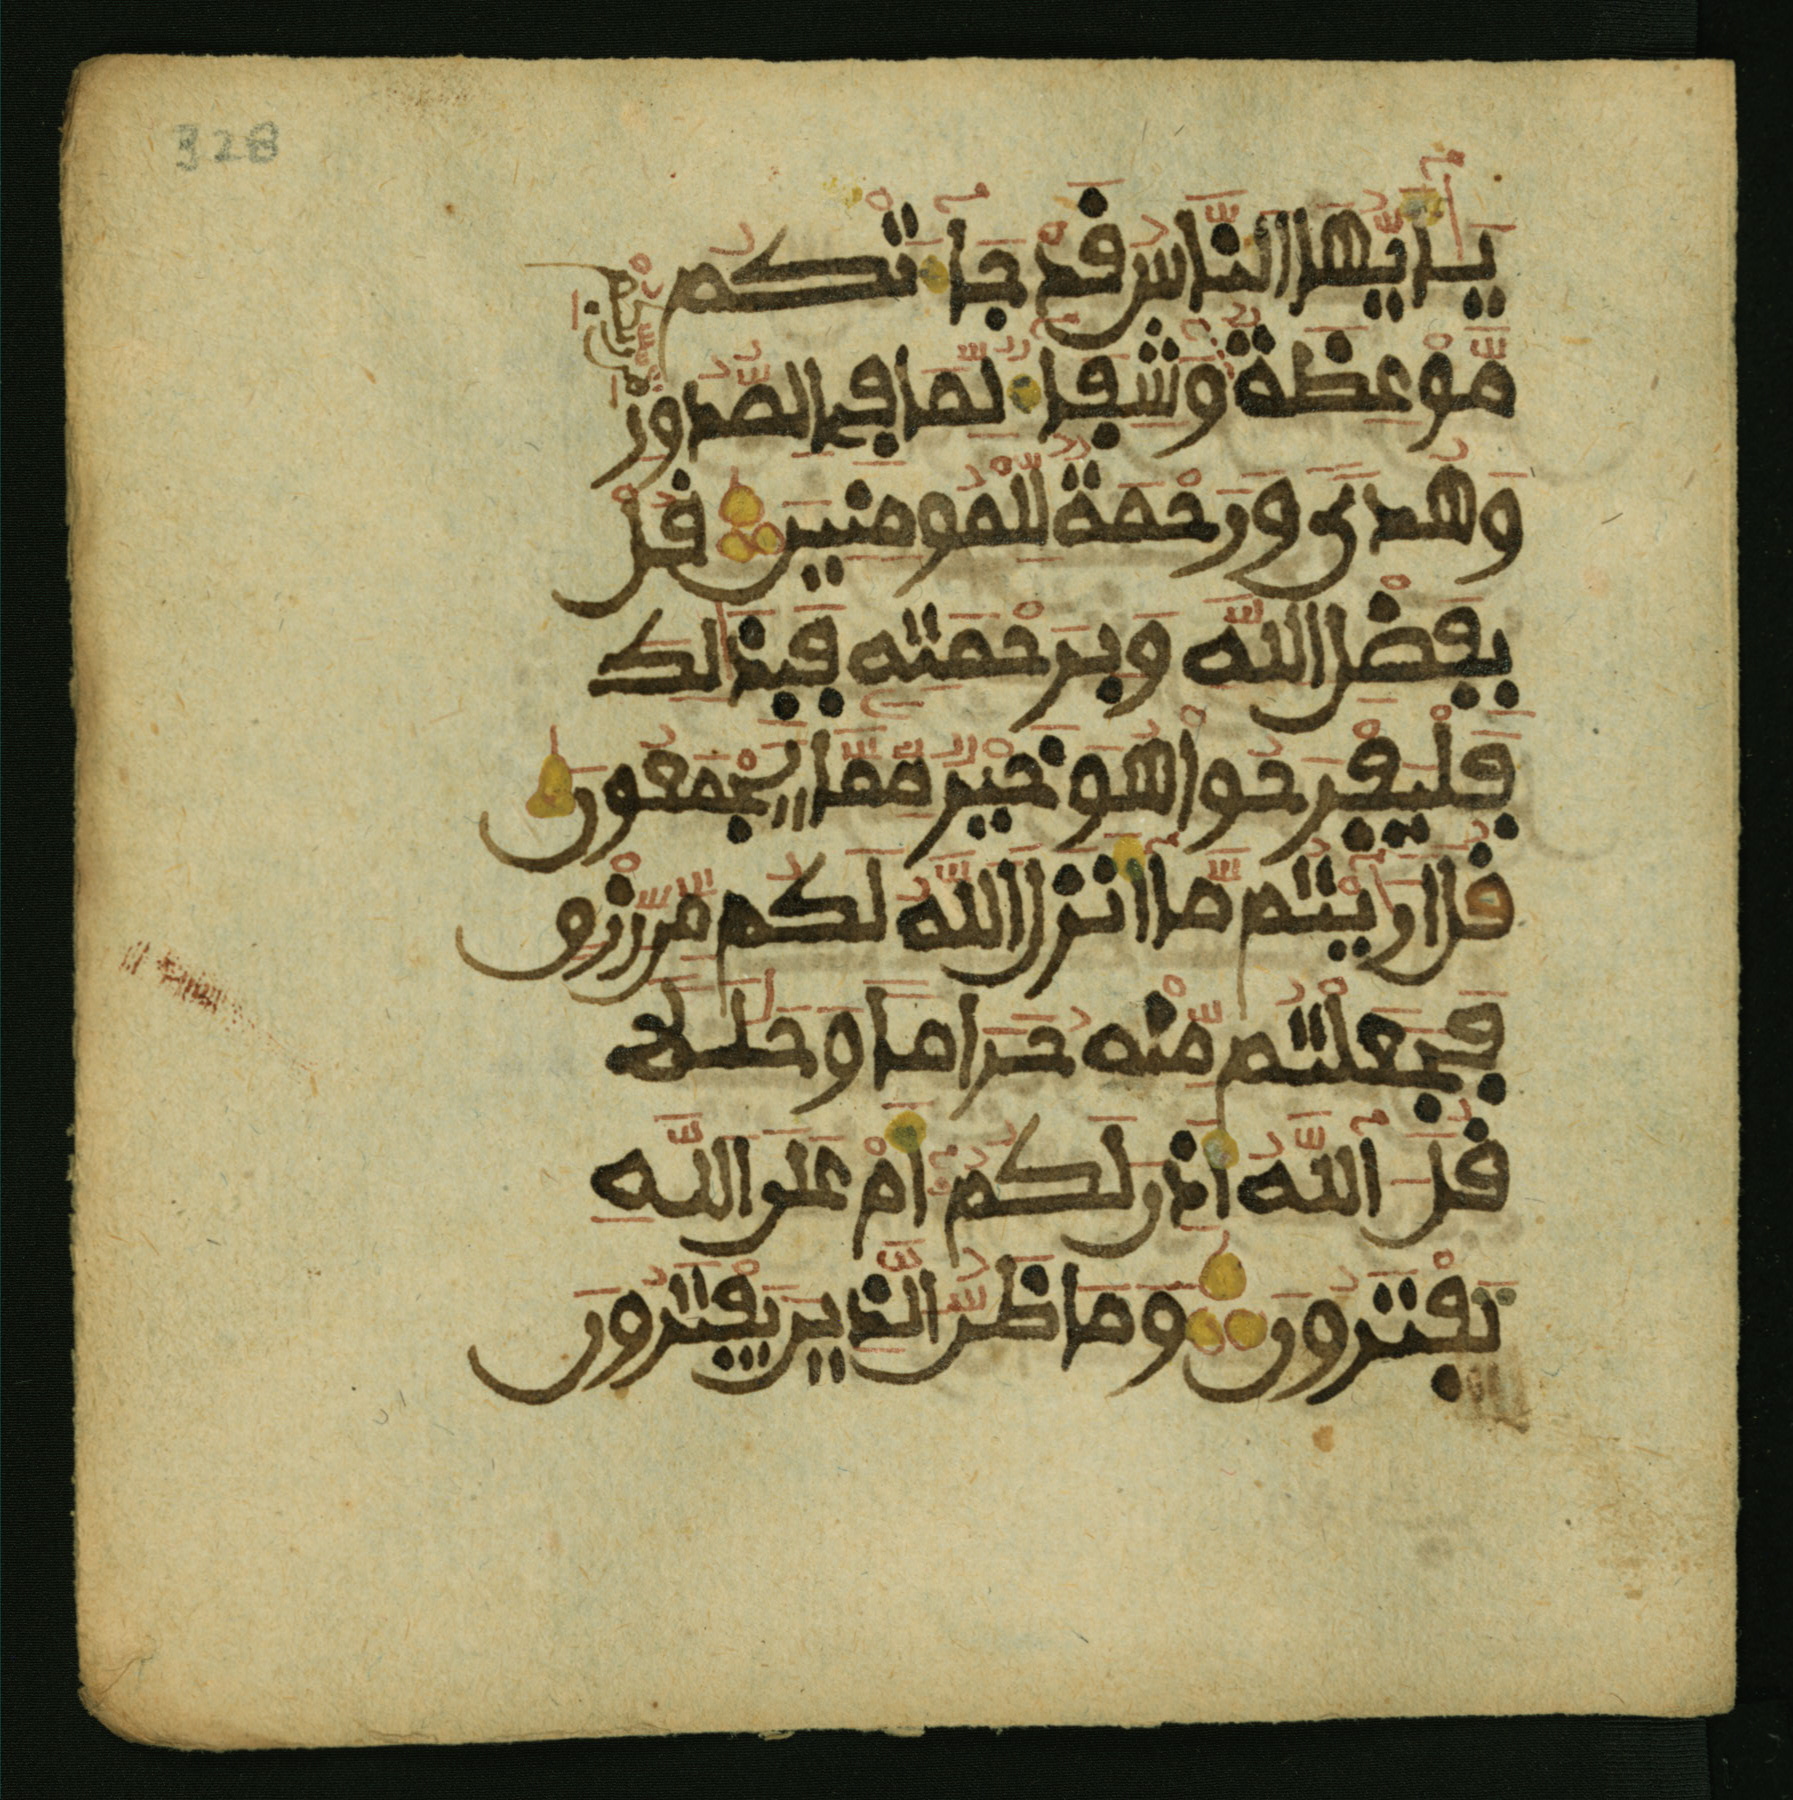 328
يٰأَيُّهَا النَّاسُ قَدْ جَآءَتْكُم
مِّن رَّبِّكُمْ
مَّوْعِظَةٌ وَشِفَآءٌ لِّمَا فِي الصُّدُورِ
وَهُدىً وَرَحْمَةٌ لِّلْمُومِنِينَ قُلْ
بِفَضْلِ اللَّهِ وَبِرَحْمَتِهِ فَبِذَٰلِكَ
فَلْيَفْرَحُوا هُوَ خَيْرٌ مِّمَّا يَجْمَعُونَ
قُلَ اَرَٰيْتُم مَّآ أَنزَلَ اللَّهُ لَكُم مِّن رِّزْقٍ
فَجَعَلْتُم مِّنْهُ حَرَاماً وَحَلَٰلاً
قُلَ آللَّهُ أَذِنَ لَكُمُ أَمْ عَلَى اللَّهِ
تَفْتَرُونَ وَمَا ظَنُّ الَّذِينَ يَفْتَرُونَ